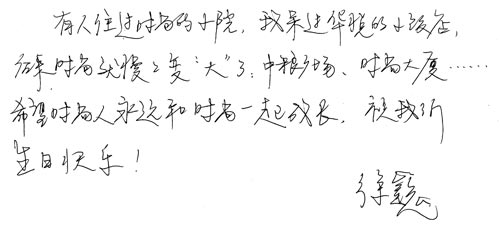 有人住过时尚的小院，我呆过华锐的小饭店，
后来时尚就慢慢变“大”了：中粮广场、时尚大厦……
希望时尚人永远和时尚一起成长，祝我们
生日快乐！
徐巍